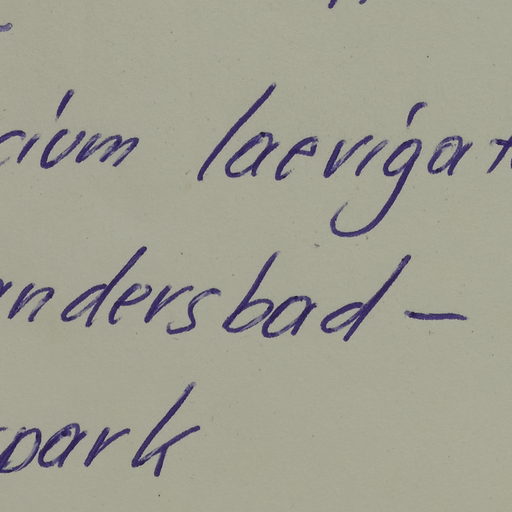 cium laevigat
andersbad –
park